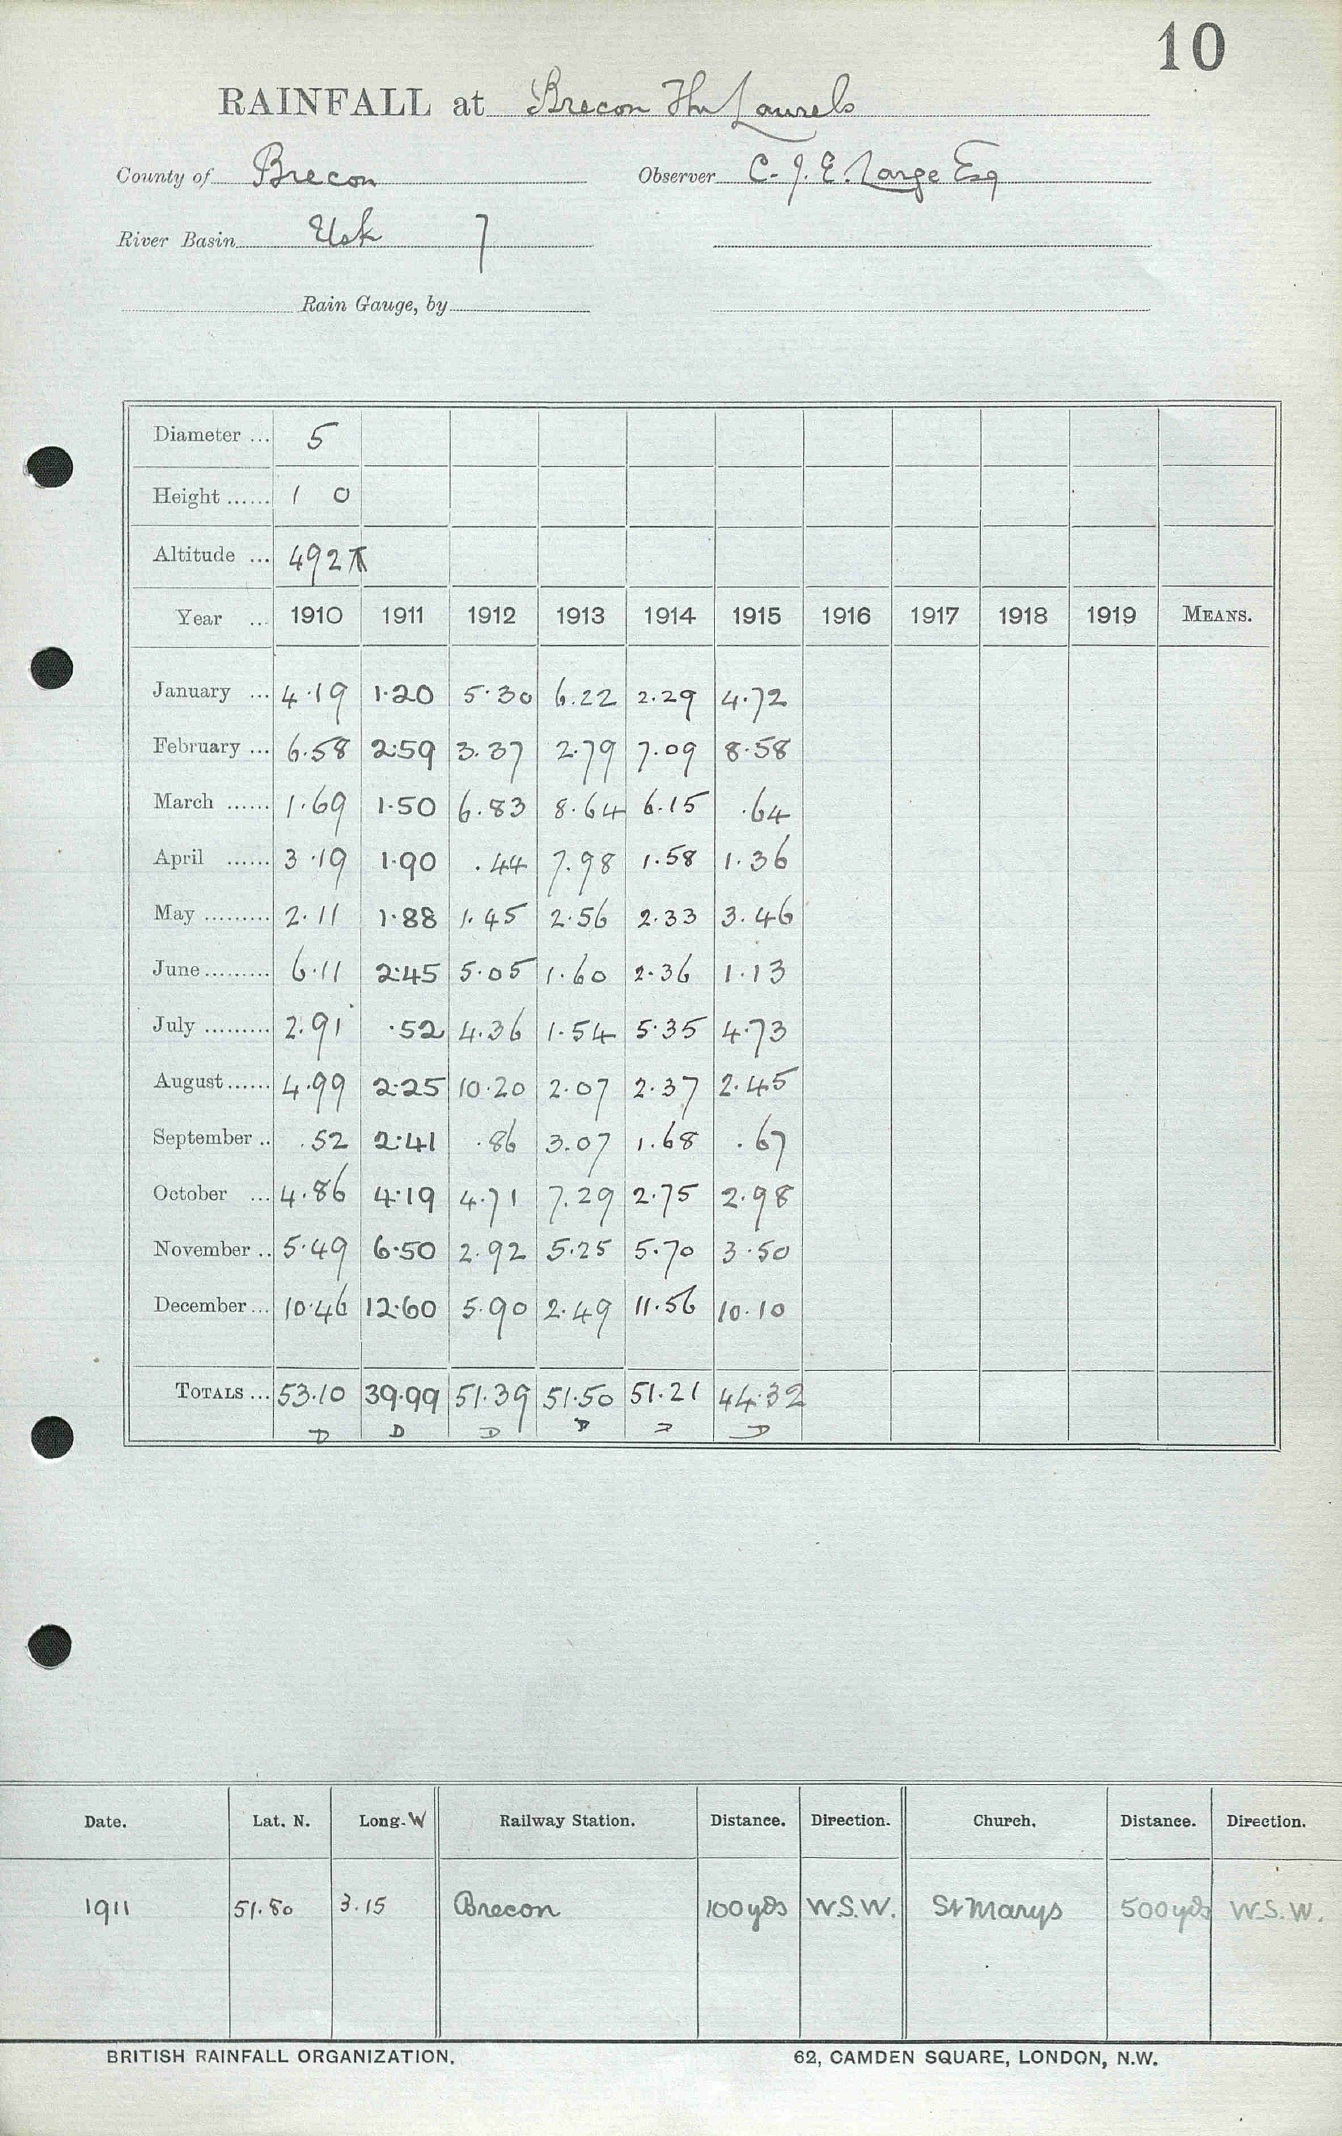 10
RAINFALL at Brecon The Laurels
County of Brecon Observer C. J. E. Large Esq
River Basin Usk 7
Rain Gauge, by
Diameter ... 5
Height ...... 1 0
Altitude ... 492
Year ... 1910 1911 1912 1913 1914 1915 1916 1917 1918 1919 MEANS.
January ... 4.19 1.20 5.30 6.22 2.29 4.72
February ... 6.58 2.59 3.37 2.79 7.09 8.58
March ...... 1.69 1.50 6.83 8.64 6.15 .64
April ...... 3.19 1.90 .44 7.98 1.58 1.36
May ......... 2.11 1.88 1.45 2.56 2.33 3.46
June ......... 6.11 2.45 5.05 1.60 2.36 1.13
July ......... 2.91 .52 4.36 1.54 5.35 4.73
August ...... 4.99 2.25 10.20 2.07 2.37 2.45
September .. .52 2.41 .86 3.07 1.68 .67
October ... 4.86 4.19 4.71 7.29 2.75 2.98
November .. 5.49 6.50 2.92 5.25 5.70 3.50
December ... 10.46 12.60 5.90 2.49 11.56 10.10
TOTALS ... 53.10 39.99 51.39 51.50 51.21 44.32
D D D D D D
Date. Lat. N. Long. W Railway Station. Distance. Direction. Church. Distance. Direction.
1911 51.50 3.15 Brecon 100 yds W.S.W. St Marys 500 yds W.S.W.
BRITISH RAINFALL ORGANIZATION. 62, CAMDEN SQUARE, LONDON, N.W.